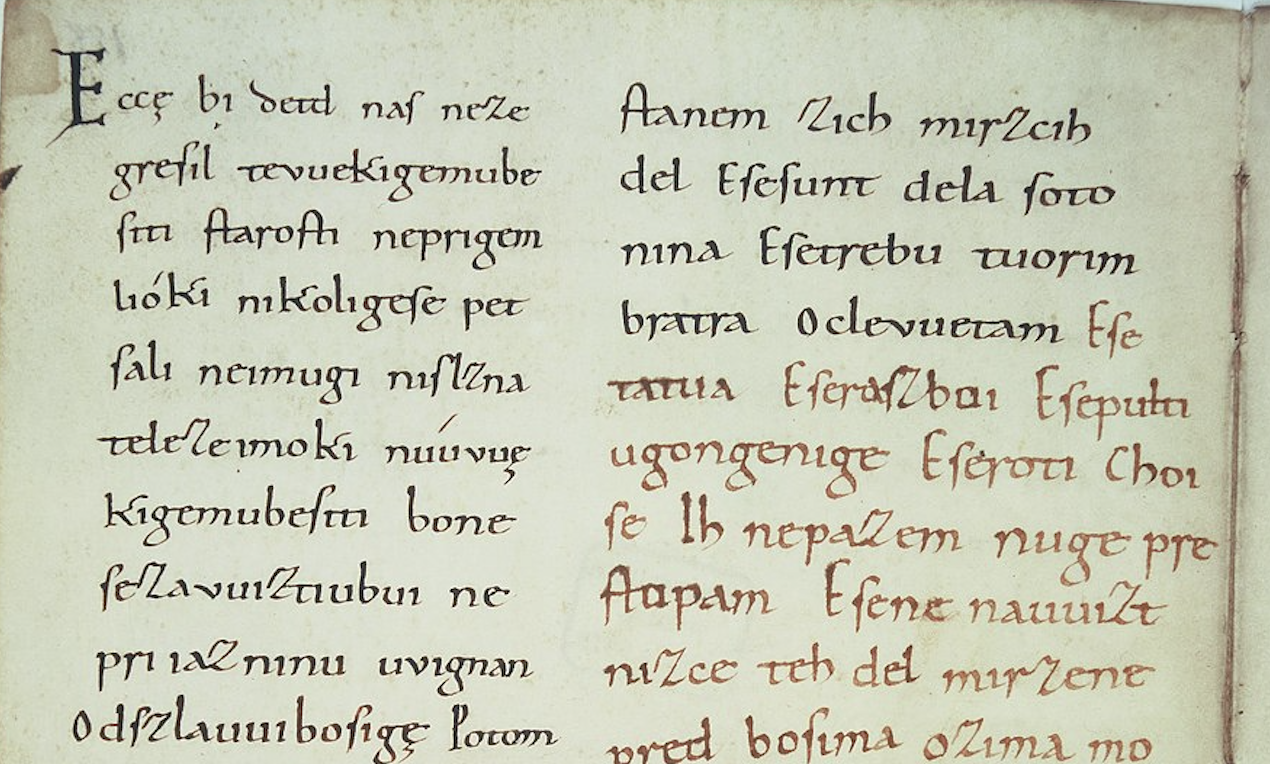 Eccę bi detd naſ neze
greſil tevuekigemube
ſiti ſtaroſti neprigem
lióki nikoligeſe pet
ſali neimugi niſlzna
telezeimoki núuvuę
kigemubeſiti bone
ſezavuiztiubui ne
pri iazninu uvignan
Odſzlauuiboſigę Potom
ſtanem zich mirzcih
del Eſeſunt dela ſoto
nina Eſetrebu tuorim
bratra Oclevuetam Eſe
tatua Eſeraſzboi Eſepulti
ugongenige Eſeroti Choi
ſe Ih nepazem nuge pre
ſtopam Eſene nauuizt
nizce teh del mirzene
pred boſima ozima mo